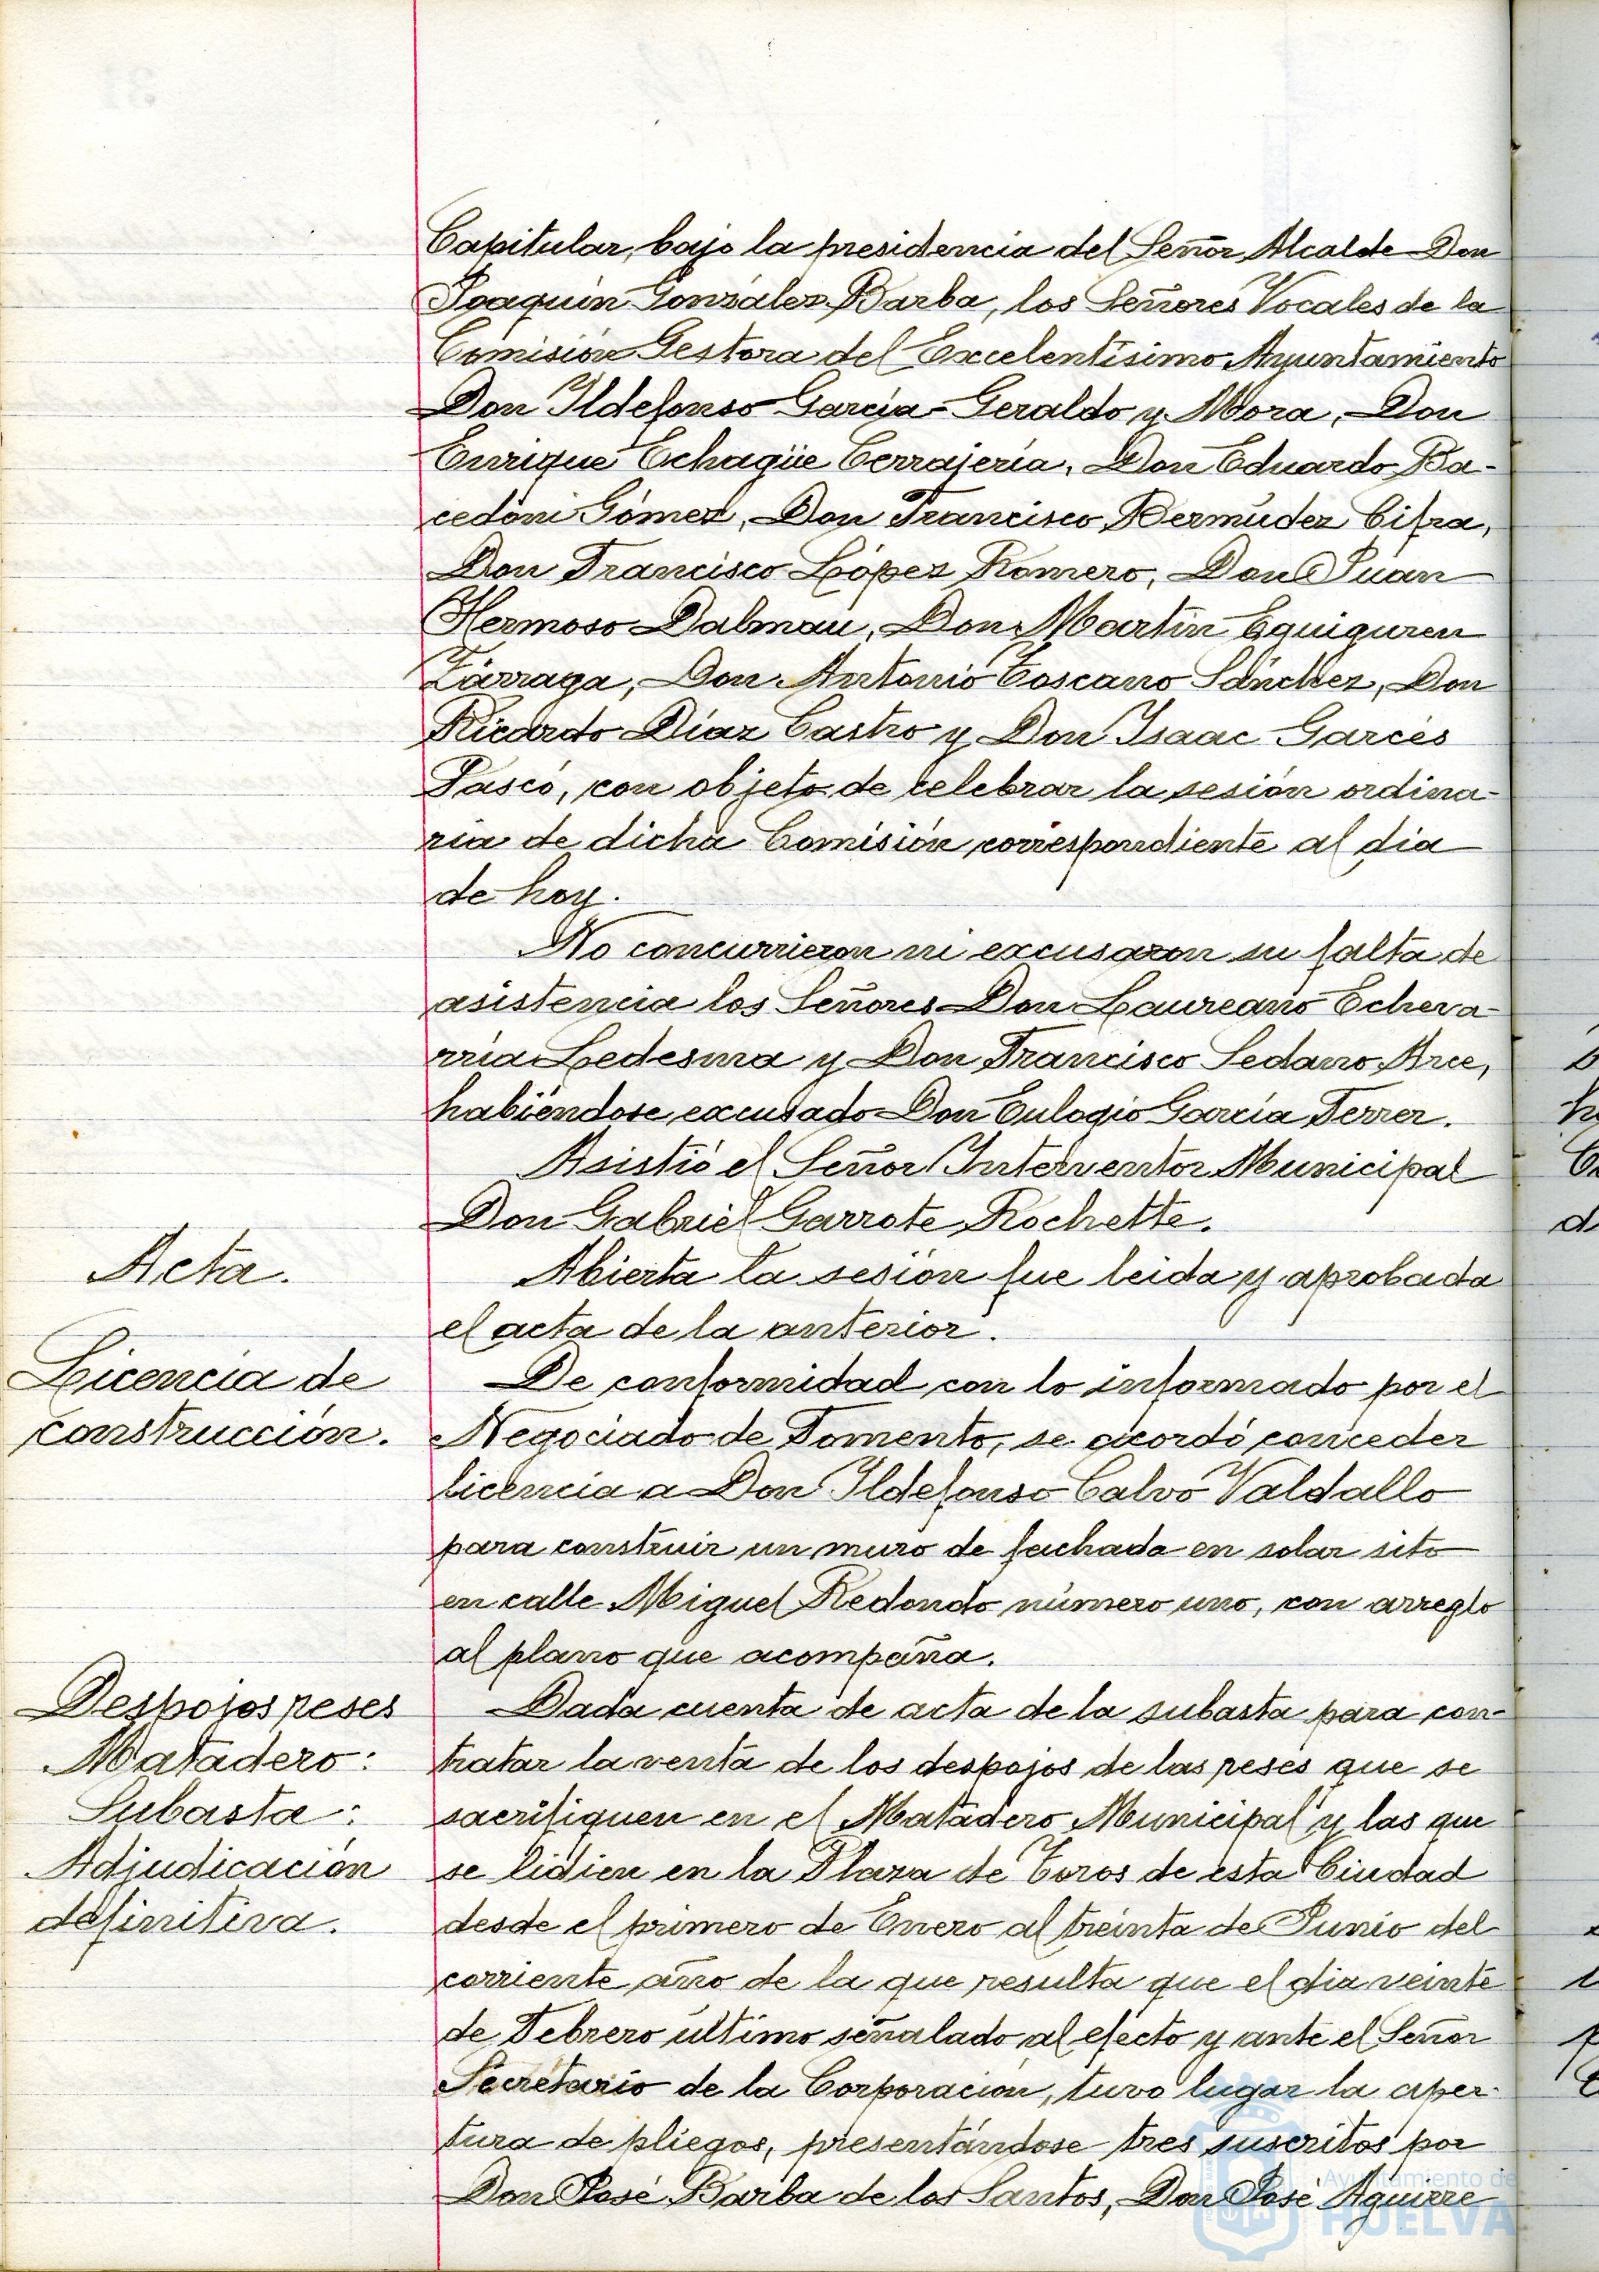 Capitular, bajo la presidencia del Señor Alcalde Don
Joaquín González Barba, los Señores Vocales de la
Comisión Gestora del Excelentísimo Ayuntamiento
Don Ildefonso García-Geraldo y Mora, Don
Enrique Echagüe Cerrajería, Don Eduardo Ba-
cedóni Gómez, Don Francisco Bermúdez Cifra,
Don Francisco López Romero, Don Juan
Hermoso Dalmau, Don Martín Eguiguren
Zárraga, Don Antonio Toscano Sánchez, Don
Ricardo Díaz Castro y Don Isaac Garcés
Pascó, con objeto de celebrar la sesión ordina-
ria de dicha Comisión correspondiente al día
de hoy.
No concurrieron ni excusaron su falta de
asistencia los Señores Don Laureano Echeva-
rría Ledesma y Don Francisco Sedano Arce,
habiéndose excusado Don Eulogio García Ferrer.
Asistió el Señor Interventor Municipal
Don Gabriel Garrote Rochette.
Acta.
Abierta la sesión fue leida y aprobada
el acta de la anterior.
Licencia de
construcción.
De conformidad con lo informado por el
Negociado de Fomento, se acordó conceder
licencia a Don Ildefonso Calvo Valdallo
para construir un muro de fachada en solar sito
en calle Miguel Redondo número uno, con arreglo
al plano que acompaña.
Despojos reses
Matadero:
Subasta:
Adjudicación
definitiva.
Dada cuenta de acta de la subasta para con-
tratar la venta de los despojos de las reses que se
sacrifiquen en el Matadero Municipal y las que
se lidien en la Plaza de Toros de esta Ciudad
desde el primero de Enero al treinta de Junio del
corriente año de la que resulta que el dia veinte
de Febrero último señalado al efecto y ante el Señor
Secretario de la Corporación, tuvo lugar la aper-
tura de pliegos, presentándose tres suscritos por
Don José Barba de los Santos, Don José Aguirre
Ayuntamiento de
HUELVA